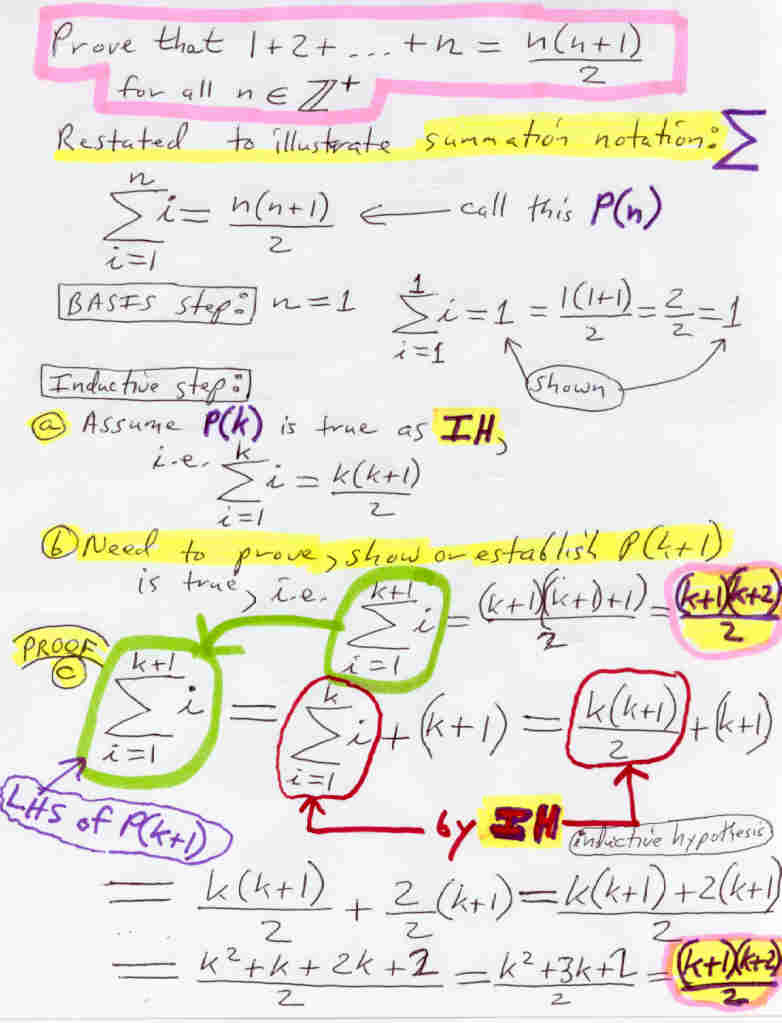 Prove that 1+2+ ... +n = n(n+1)/2
for all n ∈ ℤ⁺
Restated to illustrate summation notation: ∑
∑_{i=1}^{n} i = n(n+1)/2 ← call this P(n)
BASIS step: n=1 ∑_{i=1}^{1} i = 1 = 1(1+1)/2 = 2/2 = 1
shown
Inductive step:
(a) Assume P(k) is true as IH,
i.e. ∑_{i=1}^{k} i = k(k+1)/2
(b) Need to prove, show or establish P(k+1)
is true, i.e. ∑_{i=1}^{k+1} i = (k+1)((k+1)+1)/2 = (k+1)(k+2)/2
PROOF
(c)
∑_{i=1}^{k+1} i = ∑_{i=1}^{k} i + (k+1) = k(k+1)/2 + (k+1)
LHS of P(k+1)
by IH
inductive hypothesis
= k(k+1)/2 + 2/2 (k+1) = k(k+1)+2(k+1)/2
= k²+k+2k+2/2 = k²+3k+2/2 = (k+1)(k+2)/2